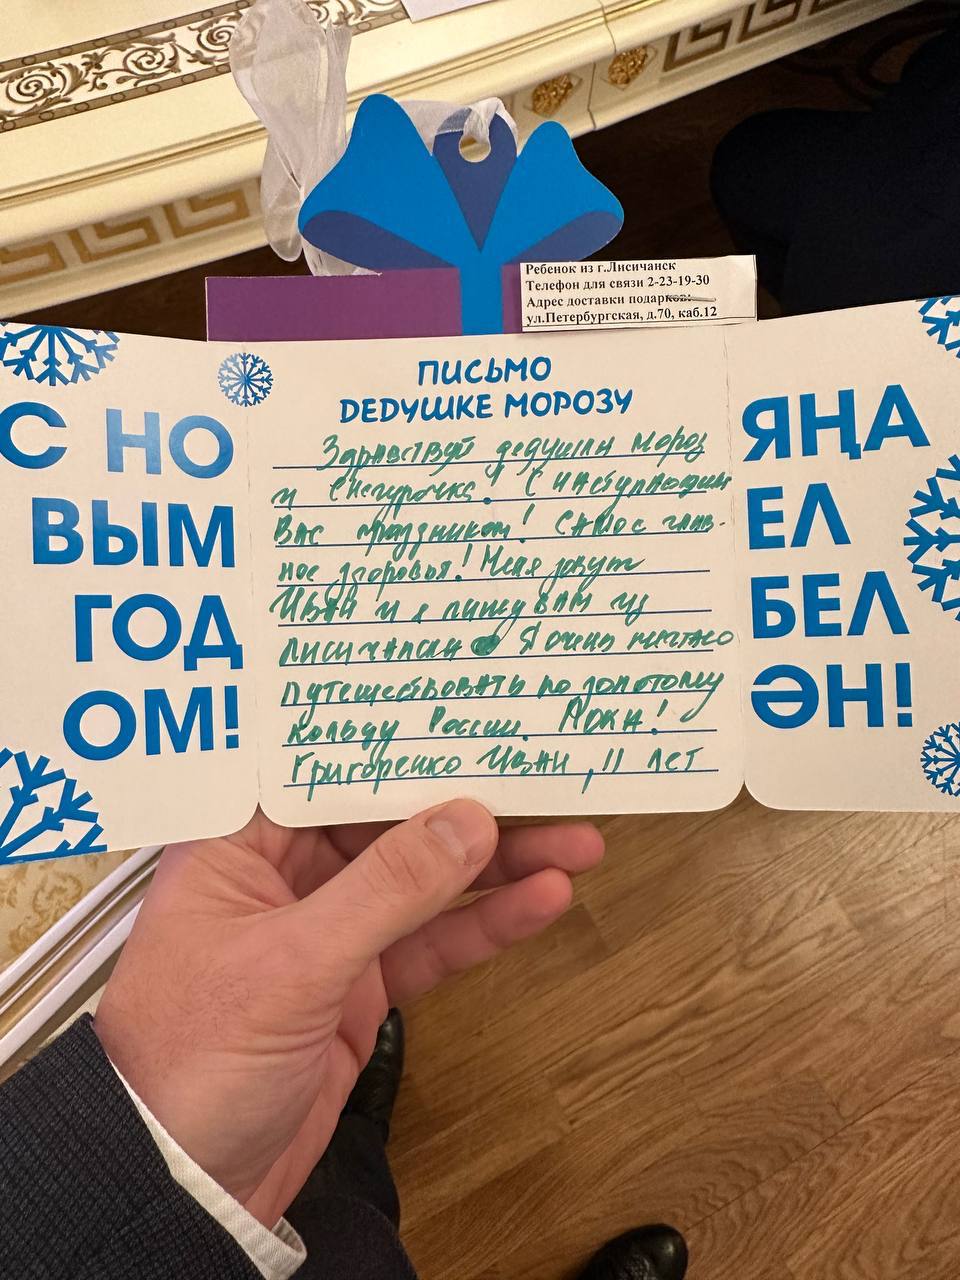 Ребенок из г.Лисичанск
Телефон для связи 2-23-19-30
Адрес доставки подарков:
ул.Петербургская, д.70, каб.12
С НО
ВЫМ
ГОД
ОМ!
ПИСЬМО
ДЕДУШКЕ МОРОЗУ
Здравствуй дедушка мороз
и Снегурочка! С наступающим
Вас праздником! Самое глав-
ное здоровья! Меня зовут
Иван и я пишу вам из
Лисичанска Я очень мечтаю
путешествовать по золотому
кольцу России. Пока!
Григоренко Иван, 11 лет
ЯҢА
ЕЛ
БЕЛ
ӘН!